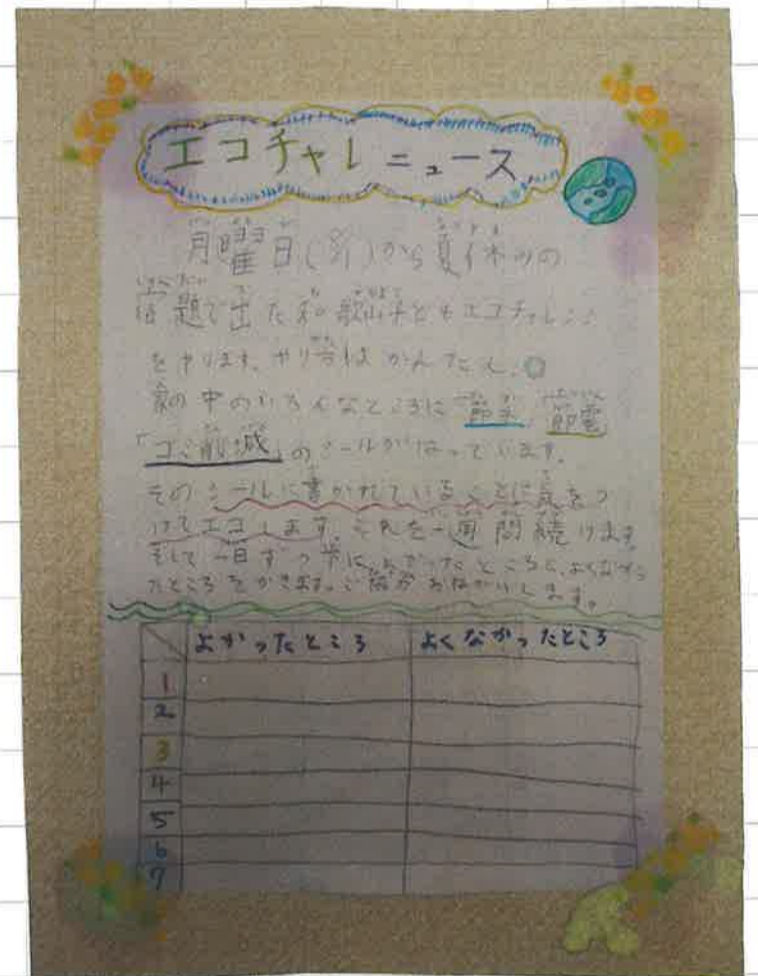 エコチャレニュース
月曜日(8/1)から夏休みの
宿題で出た和歌山子どもエコチャレンジ
をやります。やり方はかんたん。
家の中のいろんなところに「節水」「節電」
「ゴミ削減」のシールがはっています。
そのシールに書かれていることに気をつ
けてエコします。それを一週間続けます。
そして一日ずつ よかったところと、よくなかっ
たところをかきます。ご協力おねがいします。
よかったところ よくなかったところ
1
2
3
4
5
6
7